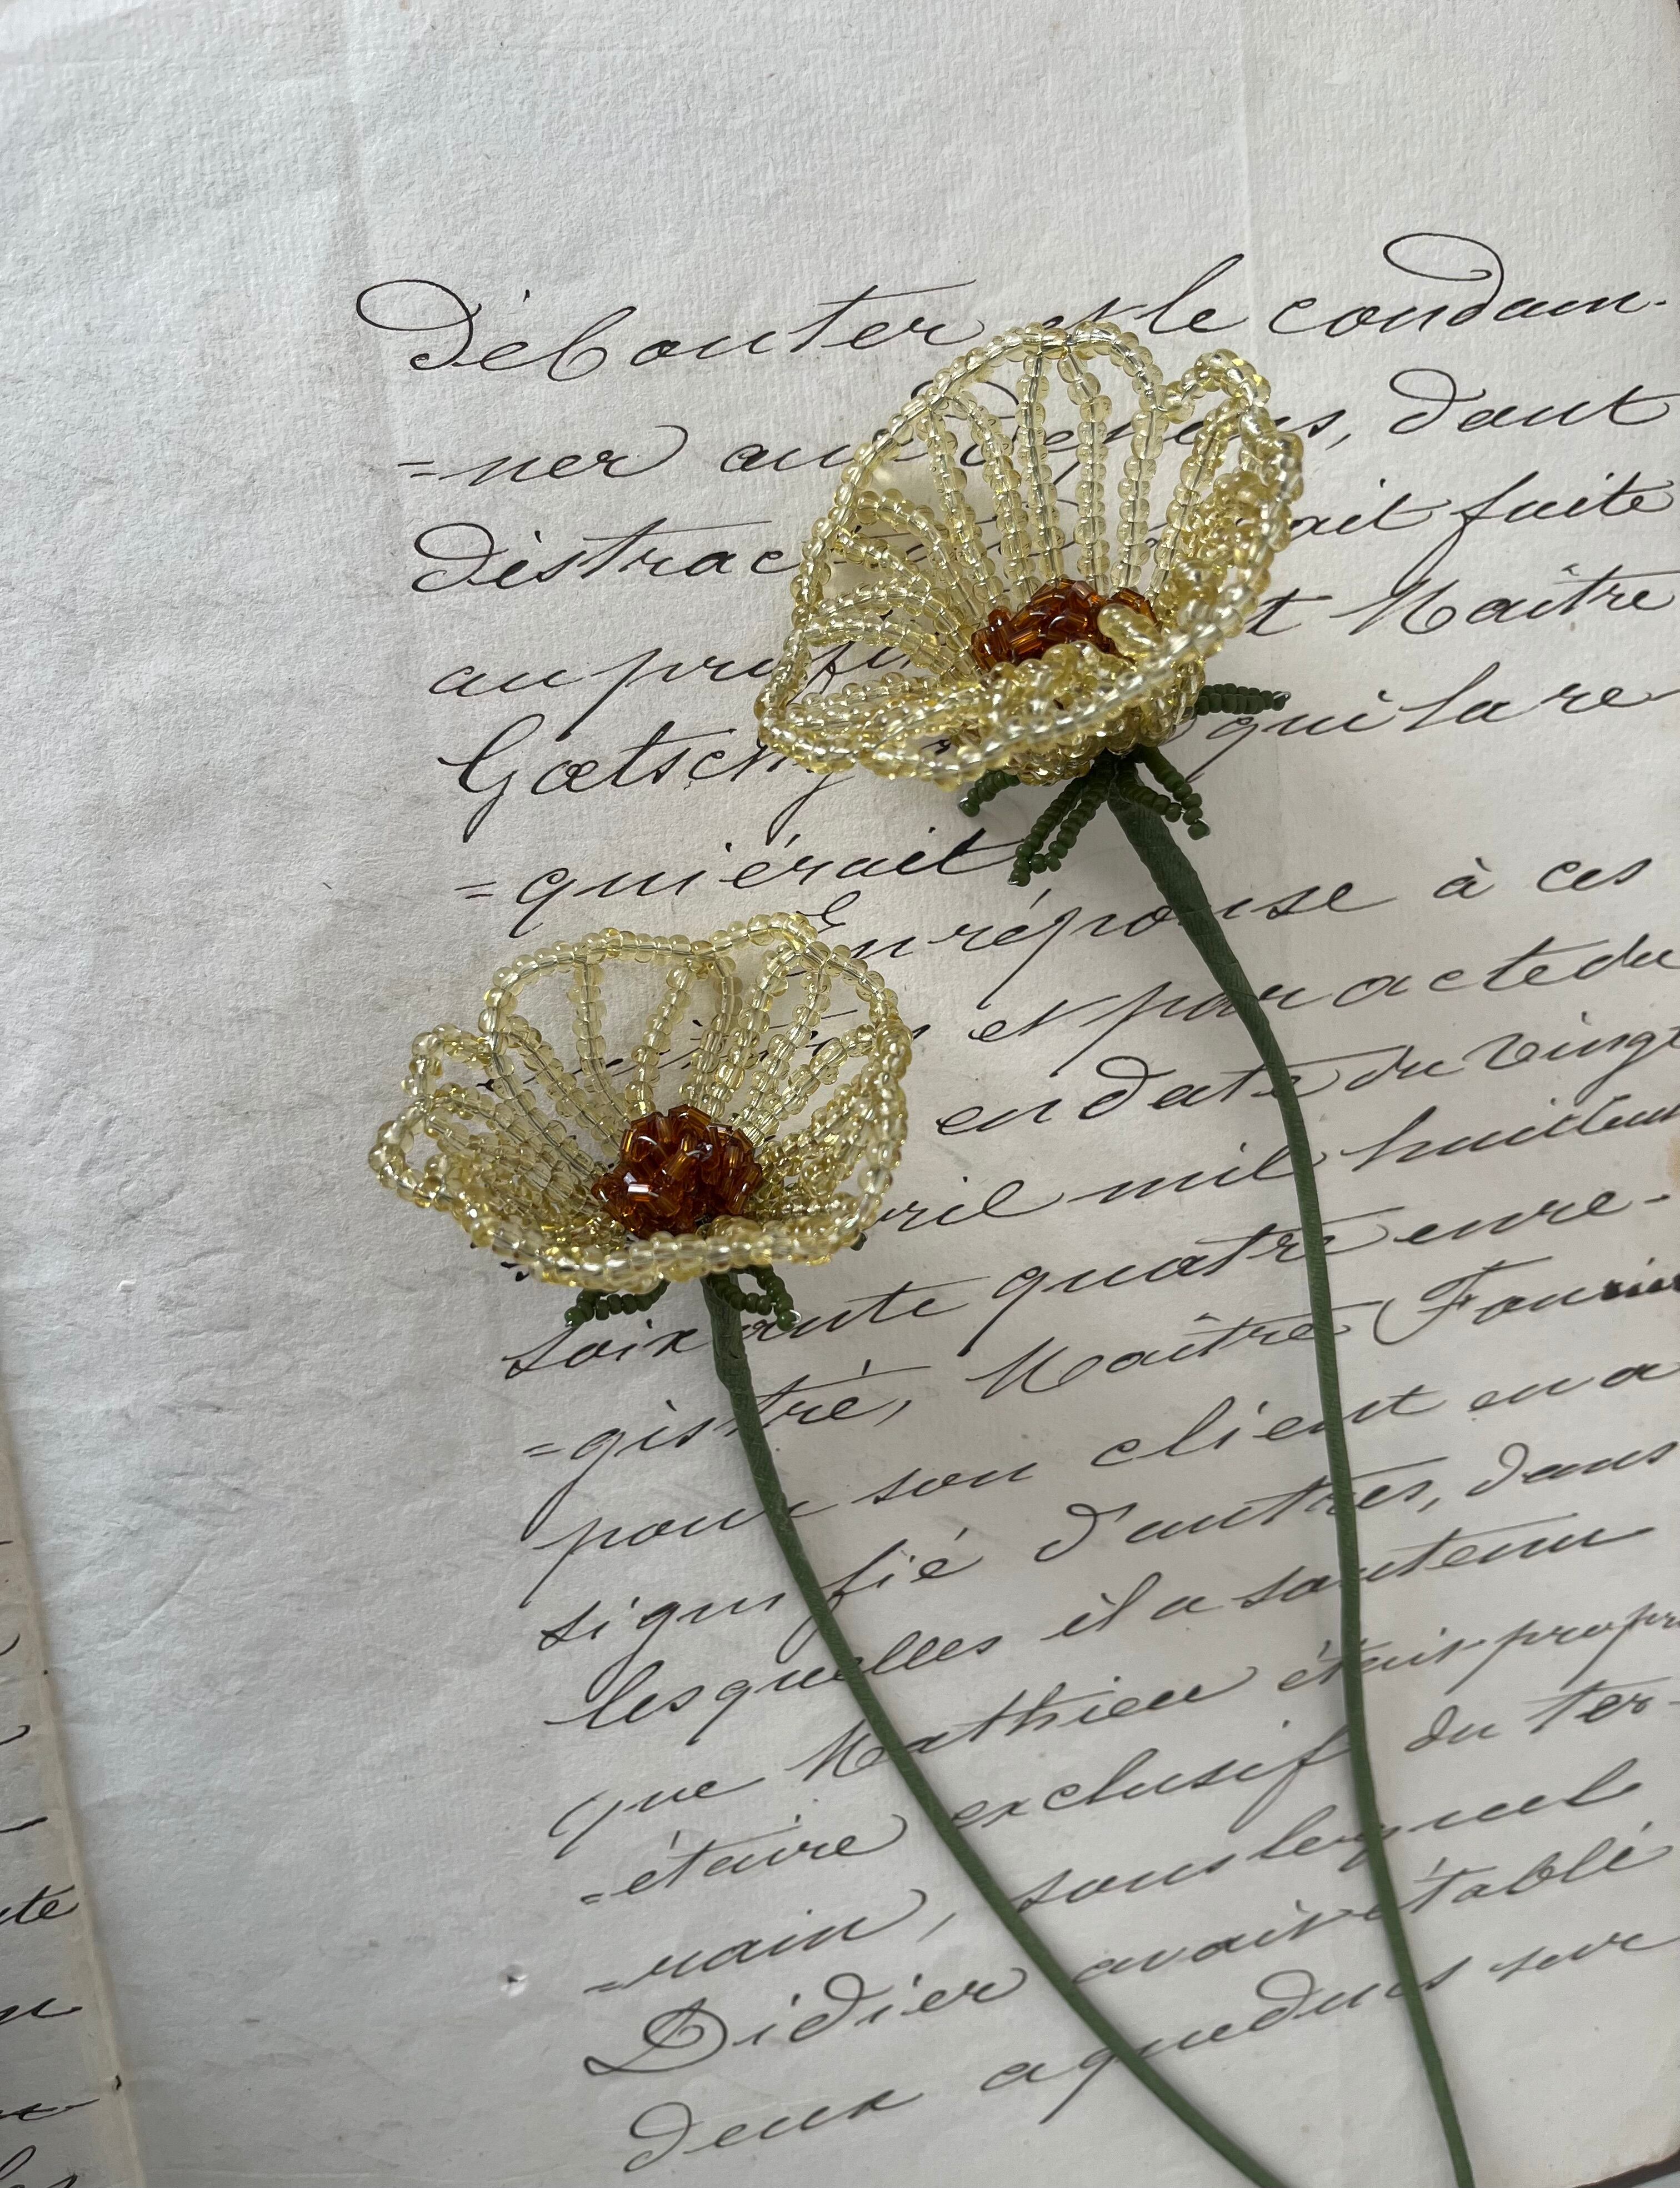 Débouter et le condam-
=ner aux dépens, dont
distrac ait faite
au profit t Maître
Gœtschy qui la re-
=quiérait
En réponse à ces
et par acte du
en date du vingt
avril mil huit cent
soixante quatre enre-
=gistré, Maître Fournier
pour son client en a
signifié d'autres, dans
lesquelles il a soutenu
que Mathieu était propri
=étaire exclusif du ter-
=rain, sous lequel
Didier avait établi
deux aqueducs sur